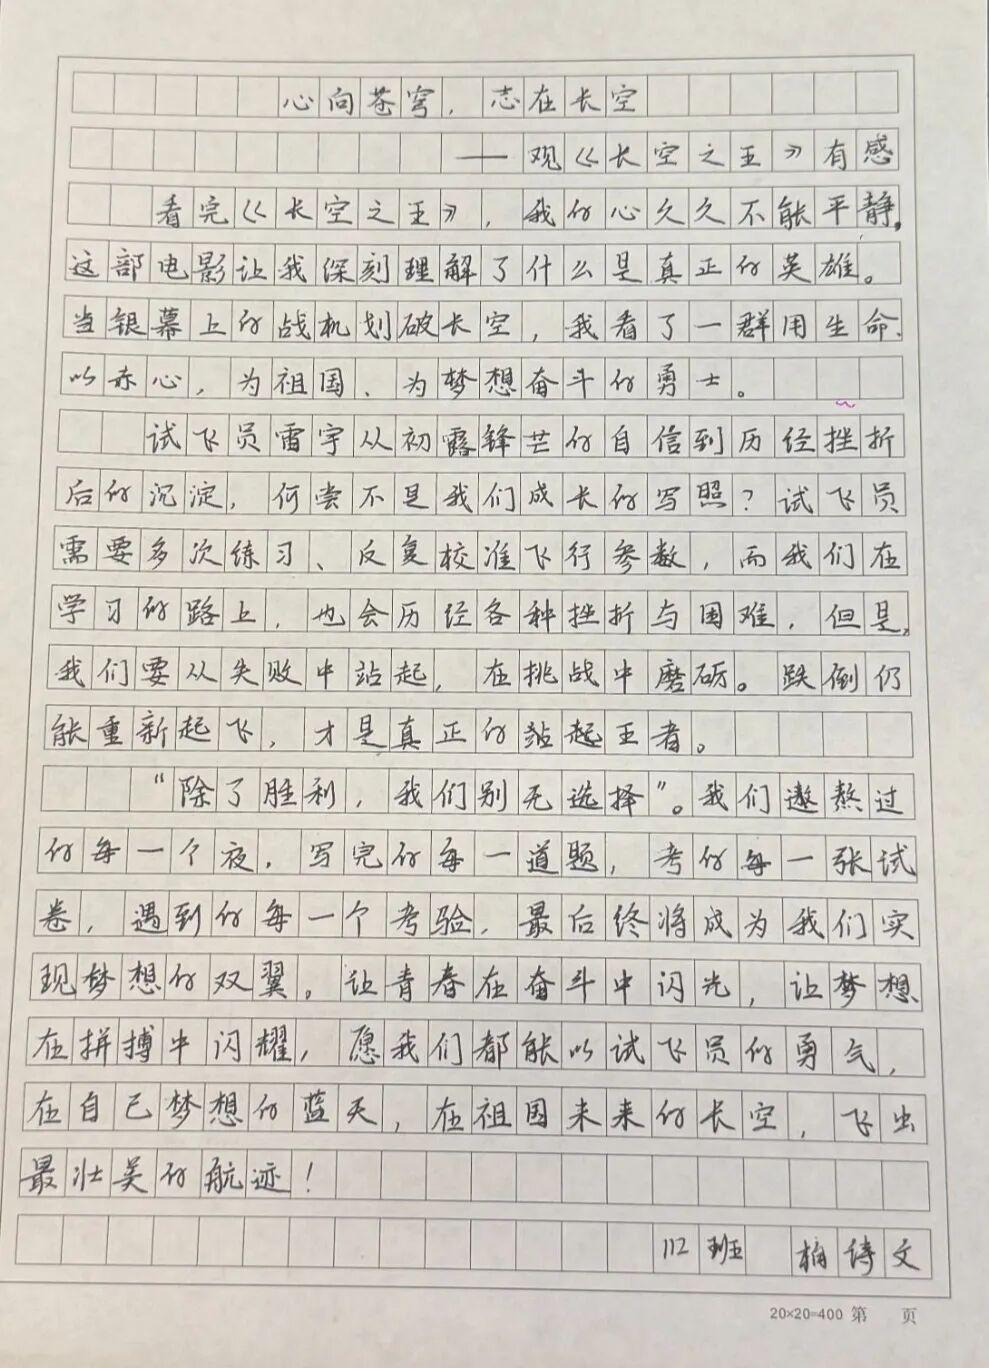 心向苍穹，志在长空
——观《长空之王》有感
看完《长空之王》，我的心久久不能平静，
这部电影让我深刻理解了什么是真正的英雄。
当银幕上的战机划破长空，我看了一群用生命、
以赤心，为祖国、为梦想奋斗的勇士。
试飞员雷宇从初露锋芒的自信到历经挫折
后的沉淀，何尝不是我们成长的写照？试飞员
需要多次练习、反复校准飞行参数，而我们在
学习的路上，也会历经各种挫折与困难，但是，
我们要从失败中站起，在挑战中磨砺。跌倒仍
能重新起飞，才是真正的站起王者。
“除了胜利，我们别无选择”。我们遨熬过
的每一个夜，写完的每一道题，考的每一张试
卷，遇到的每一个考验，最后终将成为我们实
现梦想的双翼。让青春在奋斗中闪光，让梦想
在拼搏中闪耀，愿我们都能以试飞员的勇气，
在自己梦想的蓝天，在祖国未来的长空，飞出
最壮美的航迹！
112 班 诗文
20×20=400 第 页